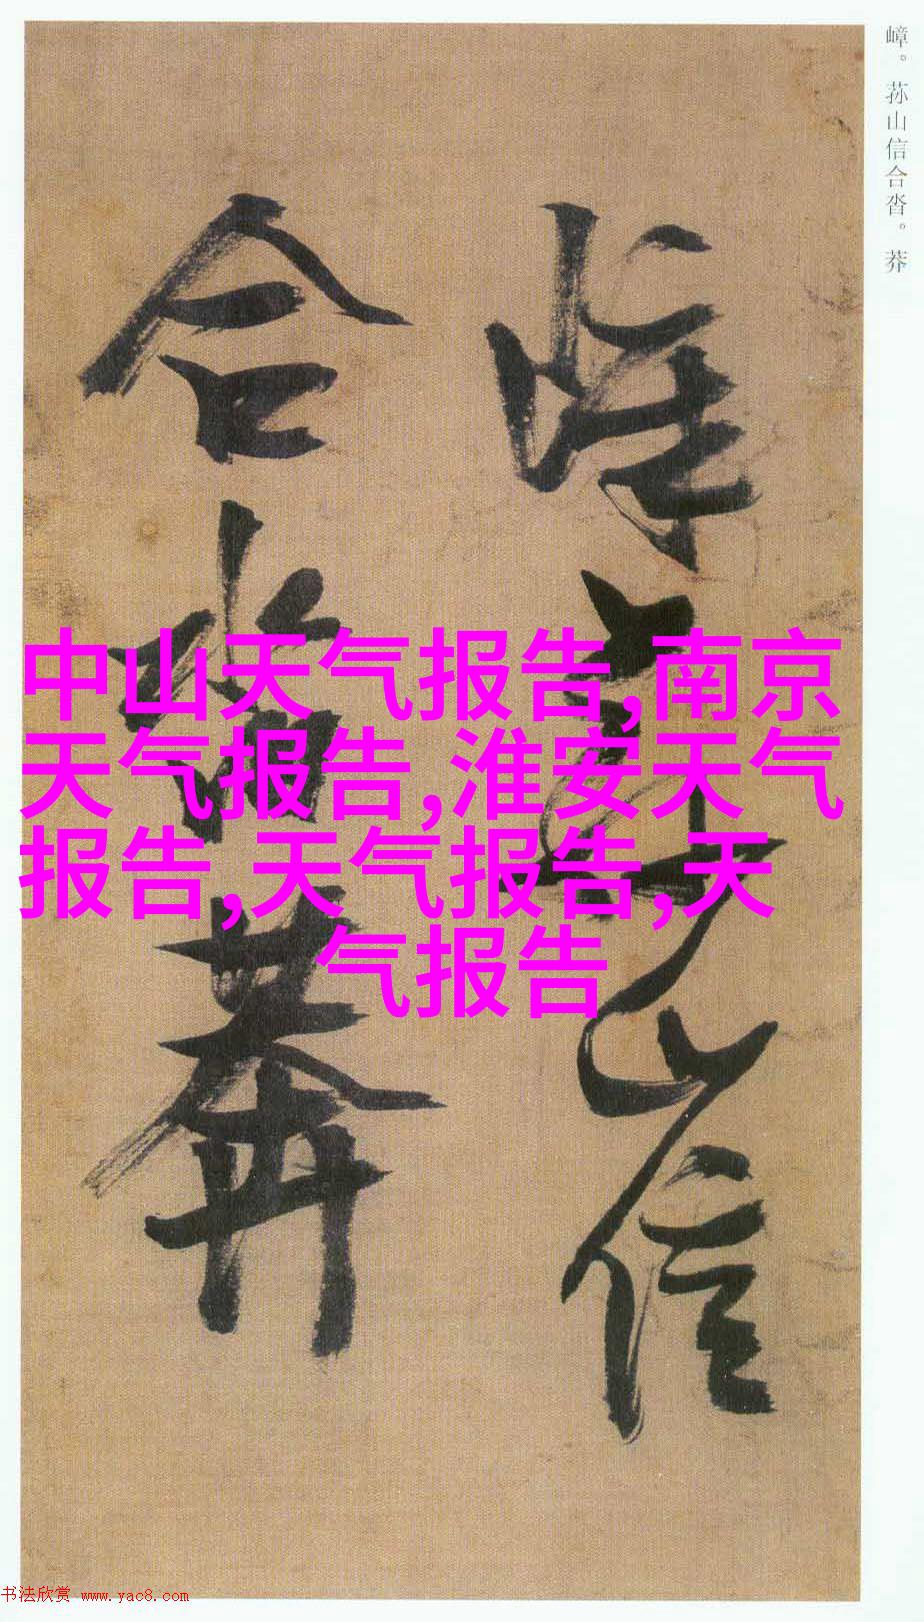 嶂。荪山信合沓。莽
嶂荪山信
合沓莽
中山天气报告,南京
天气报告,淮安天气
报告,天气报告,天
气报告
书法欣赏 www.yac8.com